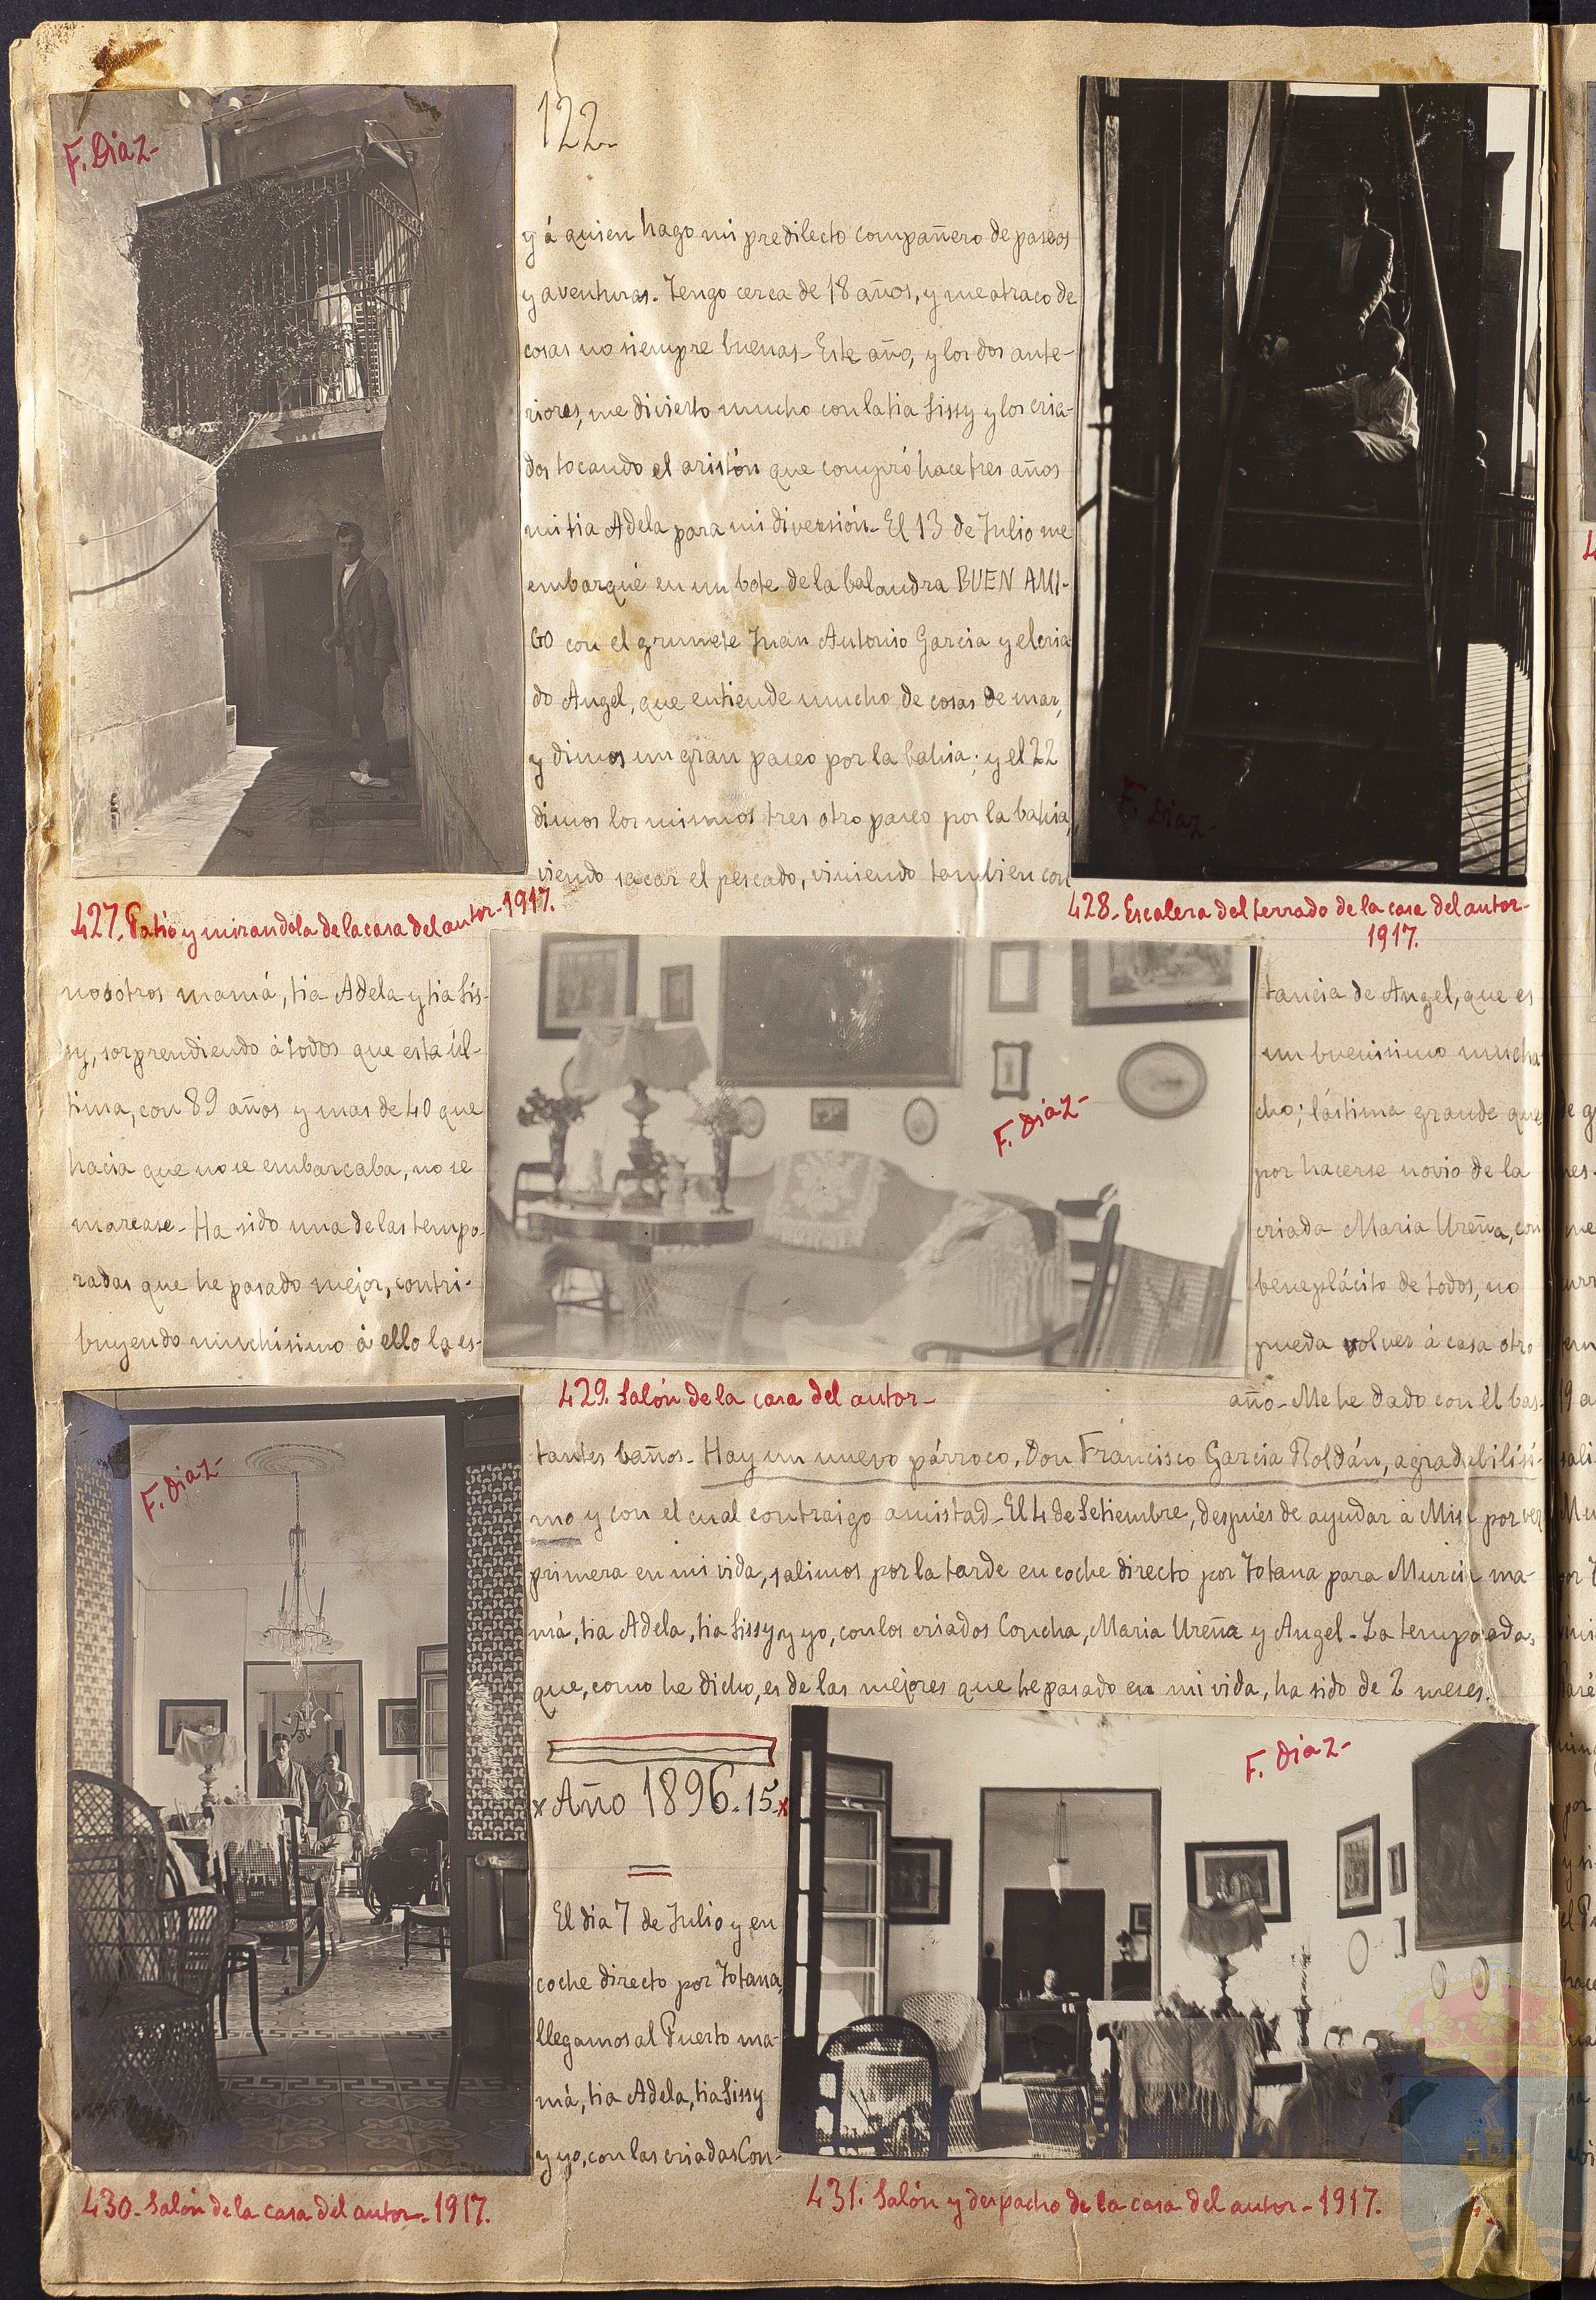 122.
F. Diaz-
y á quien hago mi predilecto compañero de paseos
y aventuras. Tengo cerca de 18 años, y me atraco de
cosas no siempre buenas. Este año, y los dos ante-
riores, me divierto mucho con la tia Sissy y los cria-
dos tocando el aristón que compró hace tres años
mi tia Adela para mi diversión. El 13 de Julio me
embarqué en un bote de la balandra BUEN AMI-
GO con el grumete Juan Antonio Garcia y el cria
do Angel, que entiende mucho de cosas de mar,
y dimos un gran paseo por la bahia; y el 22
dimos los mismos tres otro paseo por la bahia,
viendo sacar el pescado, viniendo tambien con
F. Diaz-
427. Patio y mirandola de la casa del autor-1917.
428. Escalera del terrado de la casa del autor-
1917.
nosotros mamá, tia Adela y tia Sis-
sy, sorprendiendo á todos que esta úl-
tima, con 89 años y mas de 40 que
hacia que no se embarcaba, no se
marease. Ha sido una de las tempo-
radas que he pasado mejor, contri-
buyendo muchisimo á ello la es-
F. Diaz-
tancia de Angel, que es
un buenisimo mucha
cho; lástima grande que
por hacerse novio de la
criada Maria Ureña, con
beneplácito de todos, no
pueda volver á casa otro
429. Salón de la casa del autor-
año. Me he dado con él bas-
tantes baños. Hay un nuevo párroco, Don Francisco Garcia Roldán, agradabilísi-
mo y con el cual contraigo amistad. El 4 de Setiembre, después de ayudar á Misa por vez
primera en mi vida, salimos por la tarde en coche directo por Totana para Murcia ma-
má, tia Adela, tia Sissy y yo, con los criados Concha, Maria Ureña y Angel. La temporada,
que, como he dicho, es de las mejores que he pasado en mi vida, ha sido de 2 meses.
F. Diaz-
x Año 1896. 15. x
El dia 7 de Julio y en
coche directo por Totana,
llegamos al Puerto ma-
má, tia Adela, tia Sissy
y yo, con las criadas Con-
F. Diaz-
430. Salón de la casa del autor-1917.
431. Salón y despacho de la casa del autor-1917.